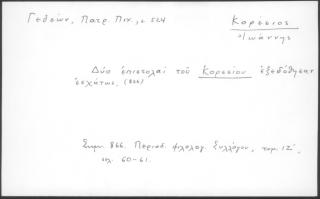 Γεδεών, Πατρ. Πιν., σ. 524
Κορέσιος
Ἰωάννης
Δύο ἐπιστολαὶ τοῦ Κορεσίου ἐξεδόθησαν
ἐσχάτως. (866)
Σημ. 866. Περιοδ. φιλολογ. Συλλόγου, τομ. ΙΖ΄,
σελ. 60-61.